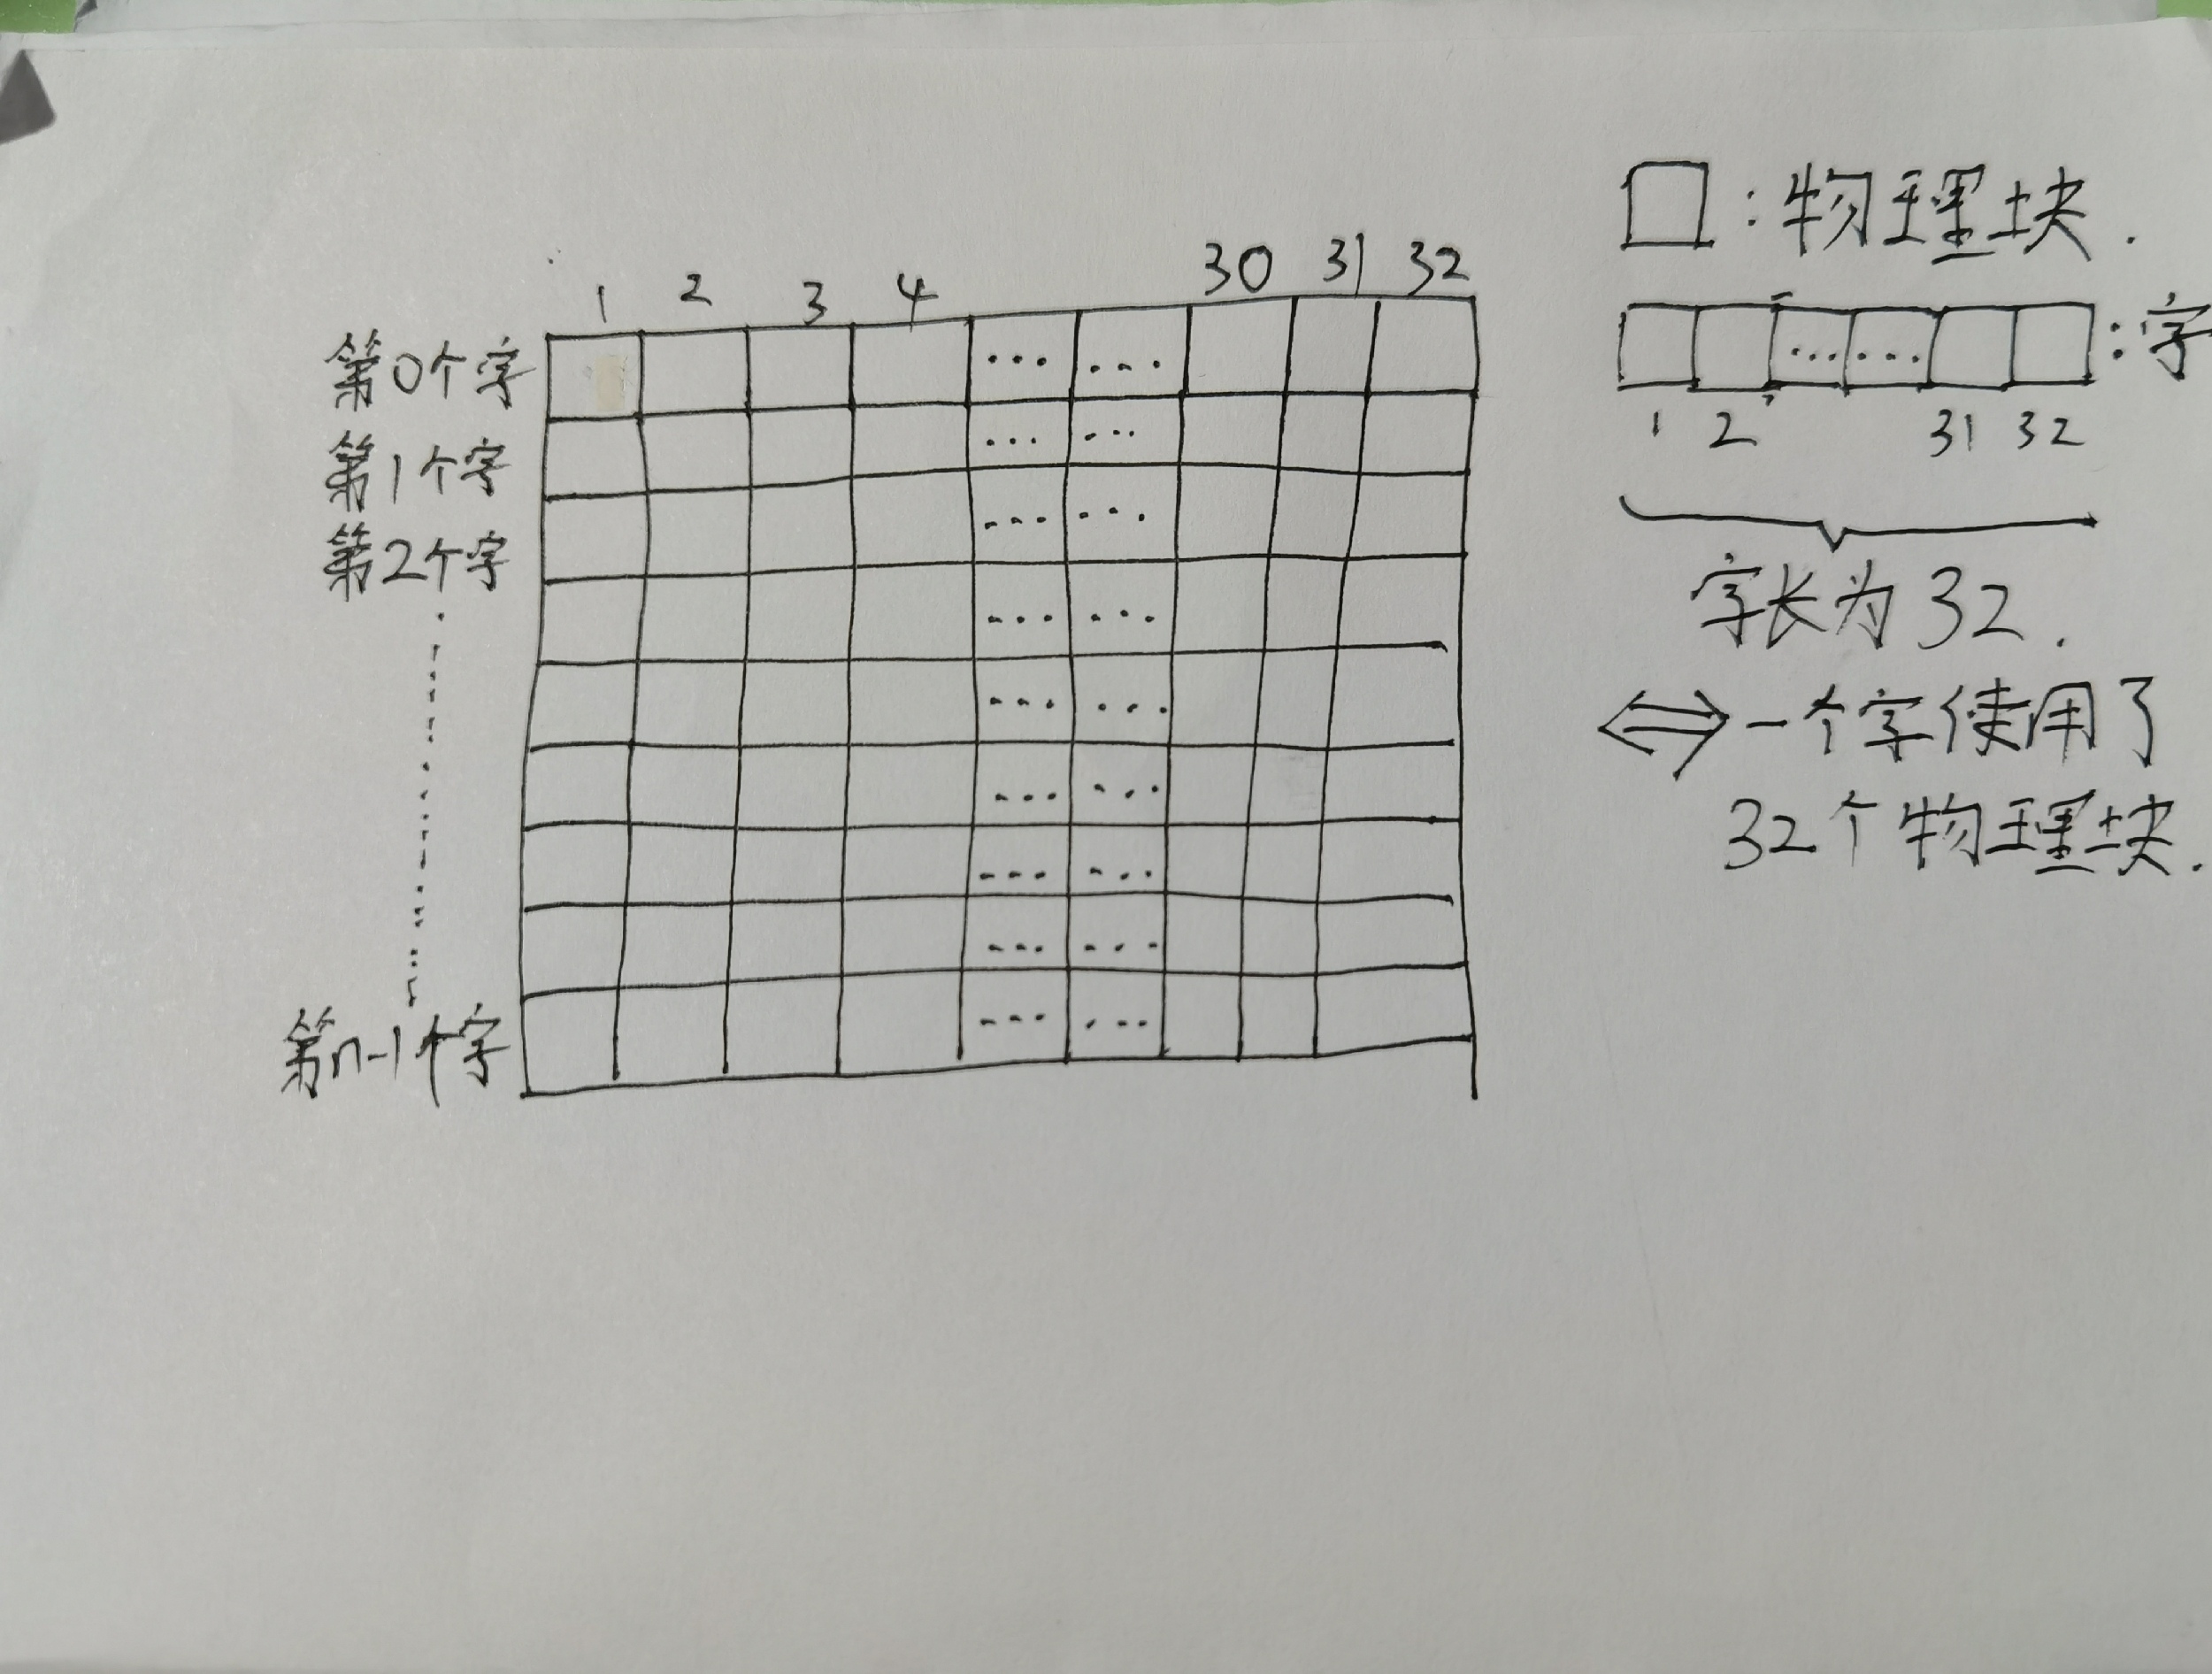 1 2 3 4 30 31 32
第0个字 ... ...
第1个字 ... ...
第2个字 ... ...
... ...
... ...
... ...
... ...
... ...
第n-1个字 ... ...
:物理块.
... ... :字
1 2 31 32
字长为32.
⇔一个字使用了
32个物理块.